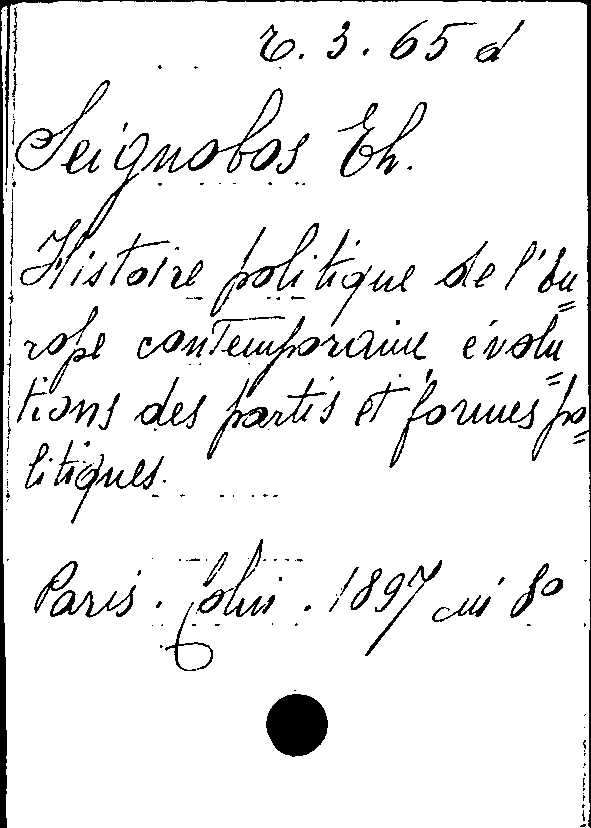 7. 3. 65 d
Seignobos Ch.
Histoire politique de l'Eu=
rope contemporaine, évolu=
tions des partis et formes po=
litiques.
Paris. Colin. 1897 in 8º